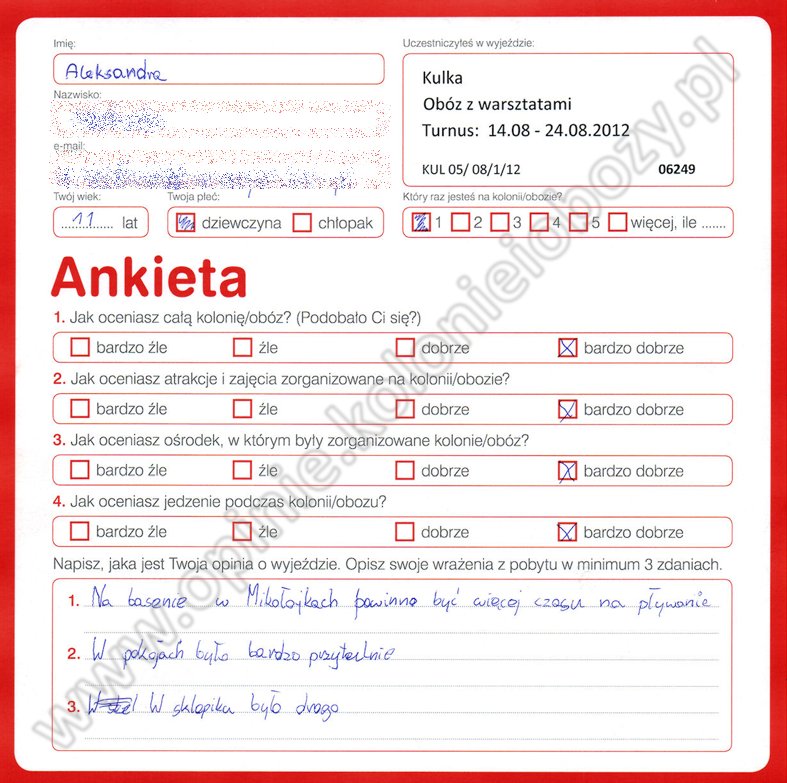 Imię:
Aleksandra
Uczestniczyłeś w wyjeździe:
Kulka
Obóz z warsztatami
Turnus: 14.08 - 24.08.2012
KUL 05/ 08/1/12 06249
Nazwisko:
e-mail:
Twój wiek:
11 lat
Twoja płeć:
dziewczyna chłopak
Który raz jesteś na kolonii/obozie?
1 2 3 4 5 więcej, ile .......
Ankieta
1. Jak oceniasz całą kolonię/obóz? (Podobało Ci się?)
bardzo źle źle dobrze bardzo dobrze
2. Jak oceniasz atrakcje i zajęcia zorganizowane na kolonii/obozie?
bardzo źle źle dobrze bardzo dobrze
3. Jak oceniasz ośrodek, w którym były zorganizowane kolonie/obóz?
bardzo źle źle dobrze bardzo dobrze
4. Jak oceniasz jedzenie podczas kolonii/obozu?
bardzo źle źle dobrze bardzo dobrze
Napisz, jaka jest Twoja opinia o wyjeździe. Opisz swoje wrażenia z pobytu w minimum 3 zdaniach.
1. Na basenie w Mikołajkach powinno być więcej czasu na pływanie
2. W pokojach było bardzo przytulnie
3. W sklepiku było drogo
www.opinie.kolonieiobozy.pl